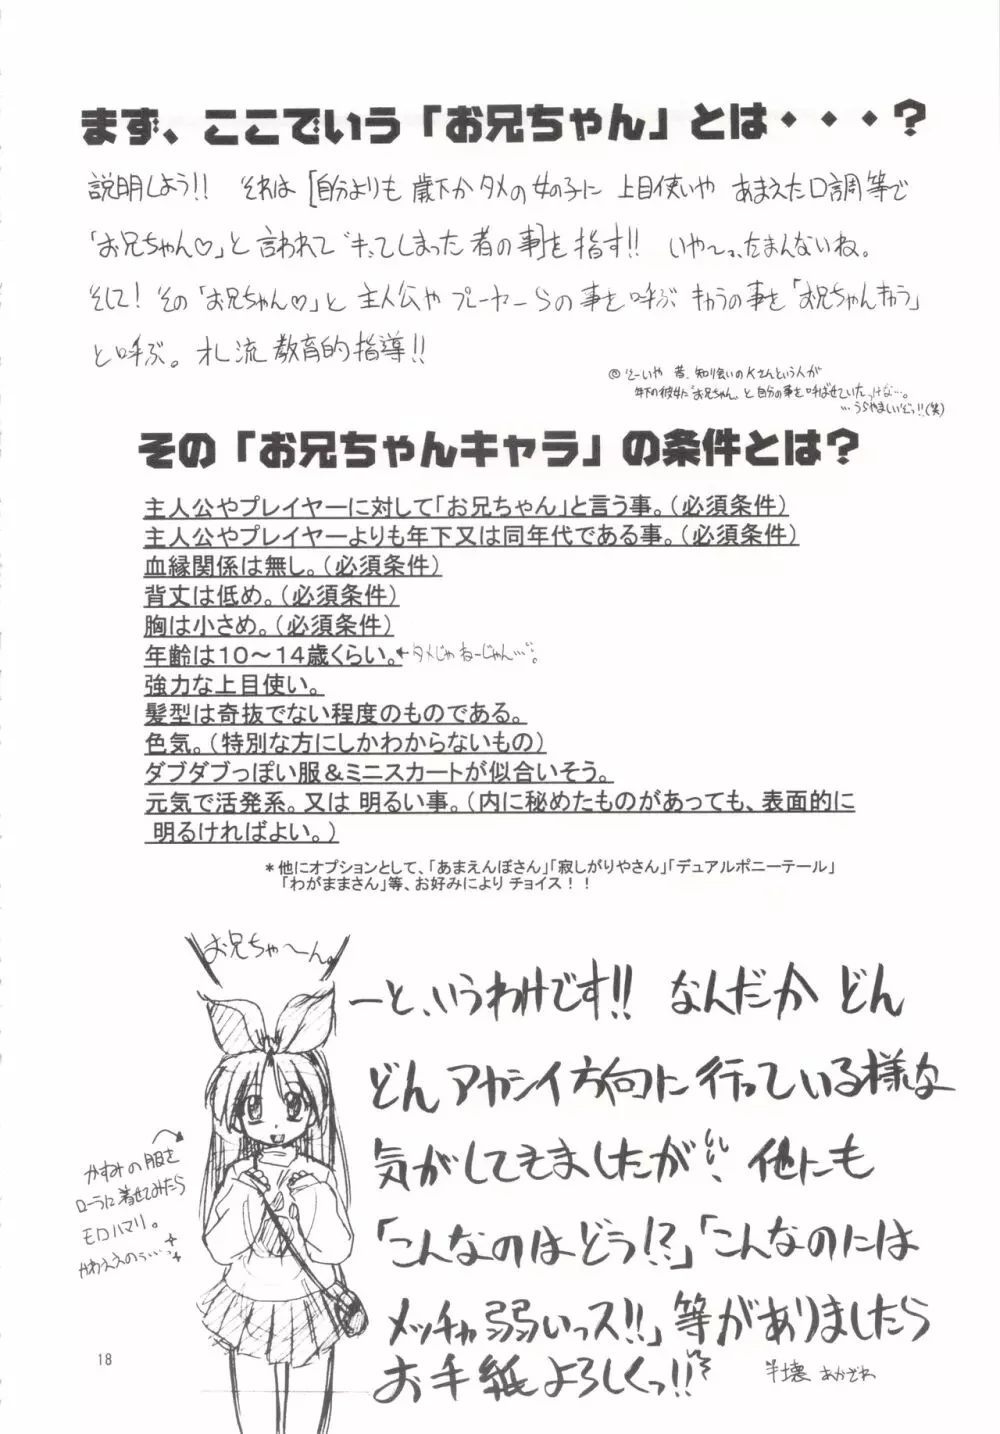 まず、ここでいう「お兄ちゃん」とは・・・？
説明しよう!! それは[自分よりも歳下かタメの女の子に上目使いやあまえた口調等で
「お兄ちゃん♡」と言われてグッ、ときてしまった者の事]を指す!! いや〜っ、たまんないね。
そして！その「お兄ちゃん♡」と主人公やプレーヤーらの事を呼ぶキャラの事を「お兄ちゃんキャラ」
と呼ぶ。オレ流教育的指導!!
◎そーいや昔、知り会いのKさんという人が
年下の彼女に「お兄ちゃん」と自分の事を呼ばせていたっけな…。
…うらやましいぞっ!!(笑)
その「お兄ちゃんキャラ」の条件とは？
主人公やプレイヤーに対して「お兄ちゃん」と言う事。（必須条件）
主人公やプレイヤーよりも年下又は同年代である事。（必須条件）
血縁関係は無し。（必須条件）
背丈は低め。（必須条件）
胸は小さめ。（必須条件）
年齢は１０～１４歳くらい。←タメじゃねーじゃん…。
強力な上目使い。
髪型は奇抜でない程度のものである。
色気。（特別な方にしかわからないもの）
ダブダブっぽい服＆ミニスカートが似合いそう。
元気で活発系。又は 明るい事。（内に秘めたものがあっても、表面的に
明るければよい。）
＊他にオプションとして、「あまえんぼさん」「寂しがりやさん」「デュアルポニーテール」
「わがままさん」等、お好みにより チョイス！！
お兄ちゃ〜ん。
ーと、いうわけです!! なんだか どん
どんアヤシイ方向に行っている様な
気がしてきましたが、他にも
「こんなのはどう!?」「こんなのには
メッチャ弱いっス!!」等がありましたら
お手紙よろしくっ!!
半壊 あかざわ
かすみの服を
ローラに着せてみたら
モロハマリ。
かわええのぅ…
18